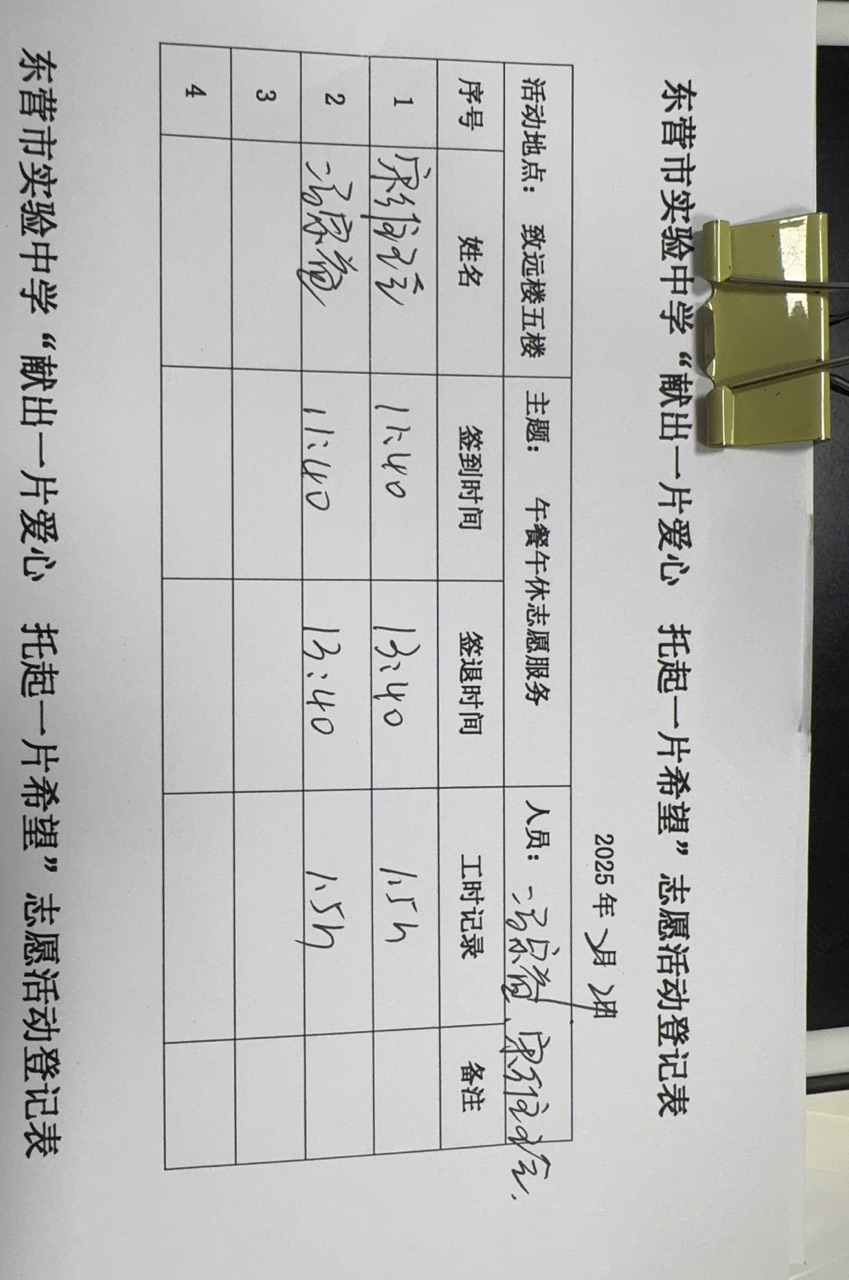 东营市实验中学“献出一片爱心 托起一片希望”志愿活动登记表
2025年 月 日
活动地点： 致远楼五楼 主题： 午餐午休志愿服务 人员：
序号 姓名 签到时间 签退时间 工时记录 备注
1 11:40 13:40 1.5h
2 11:40 13:40 1.5h
3
4
东营市实验中学“献出一片爱心 托起一片希望”志愿活动登记表